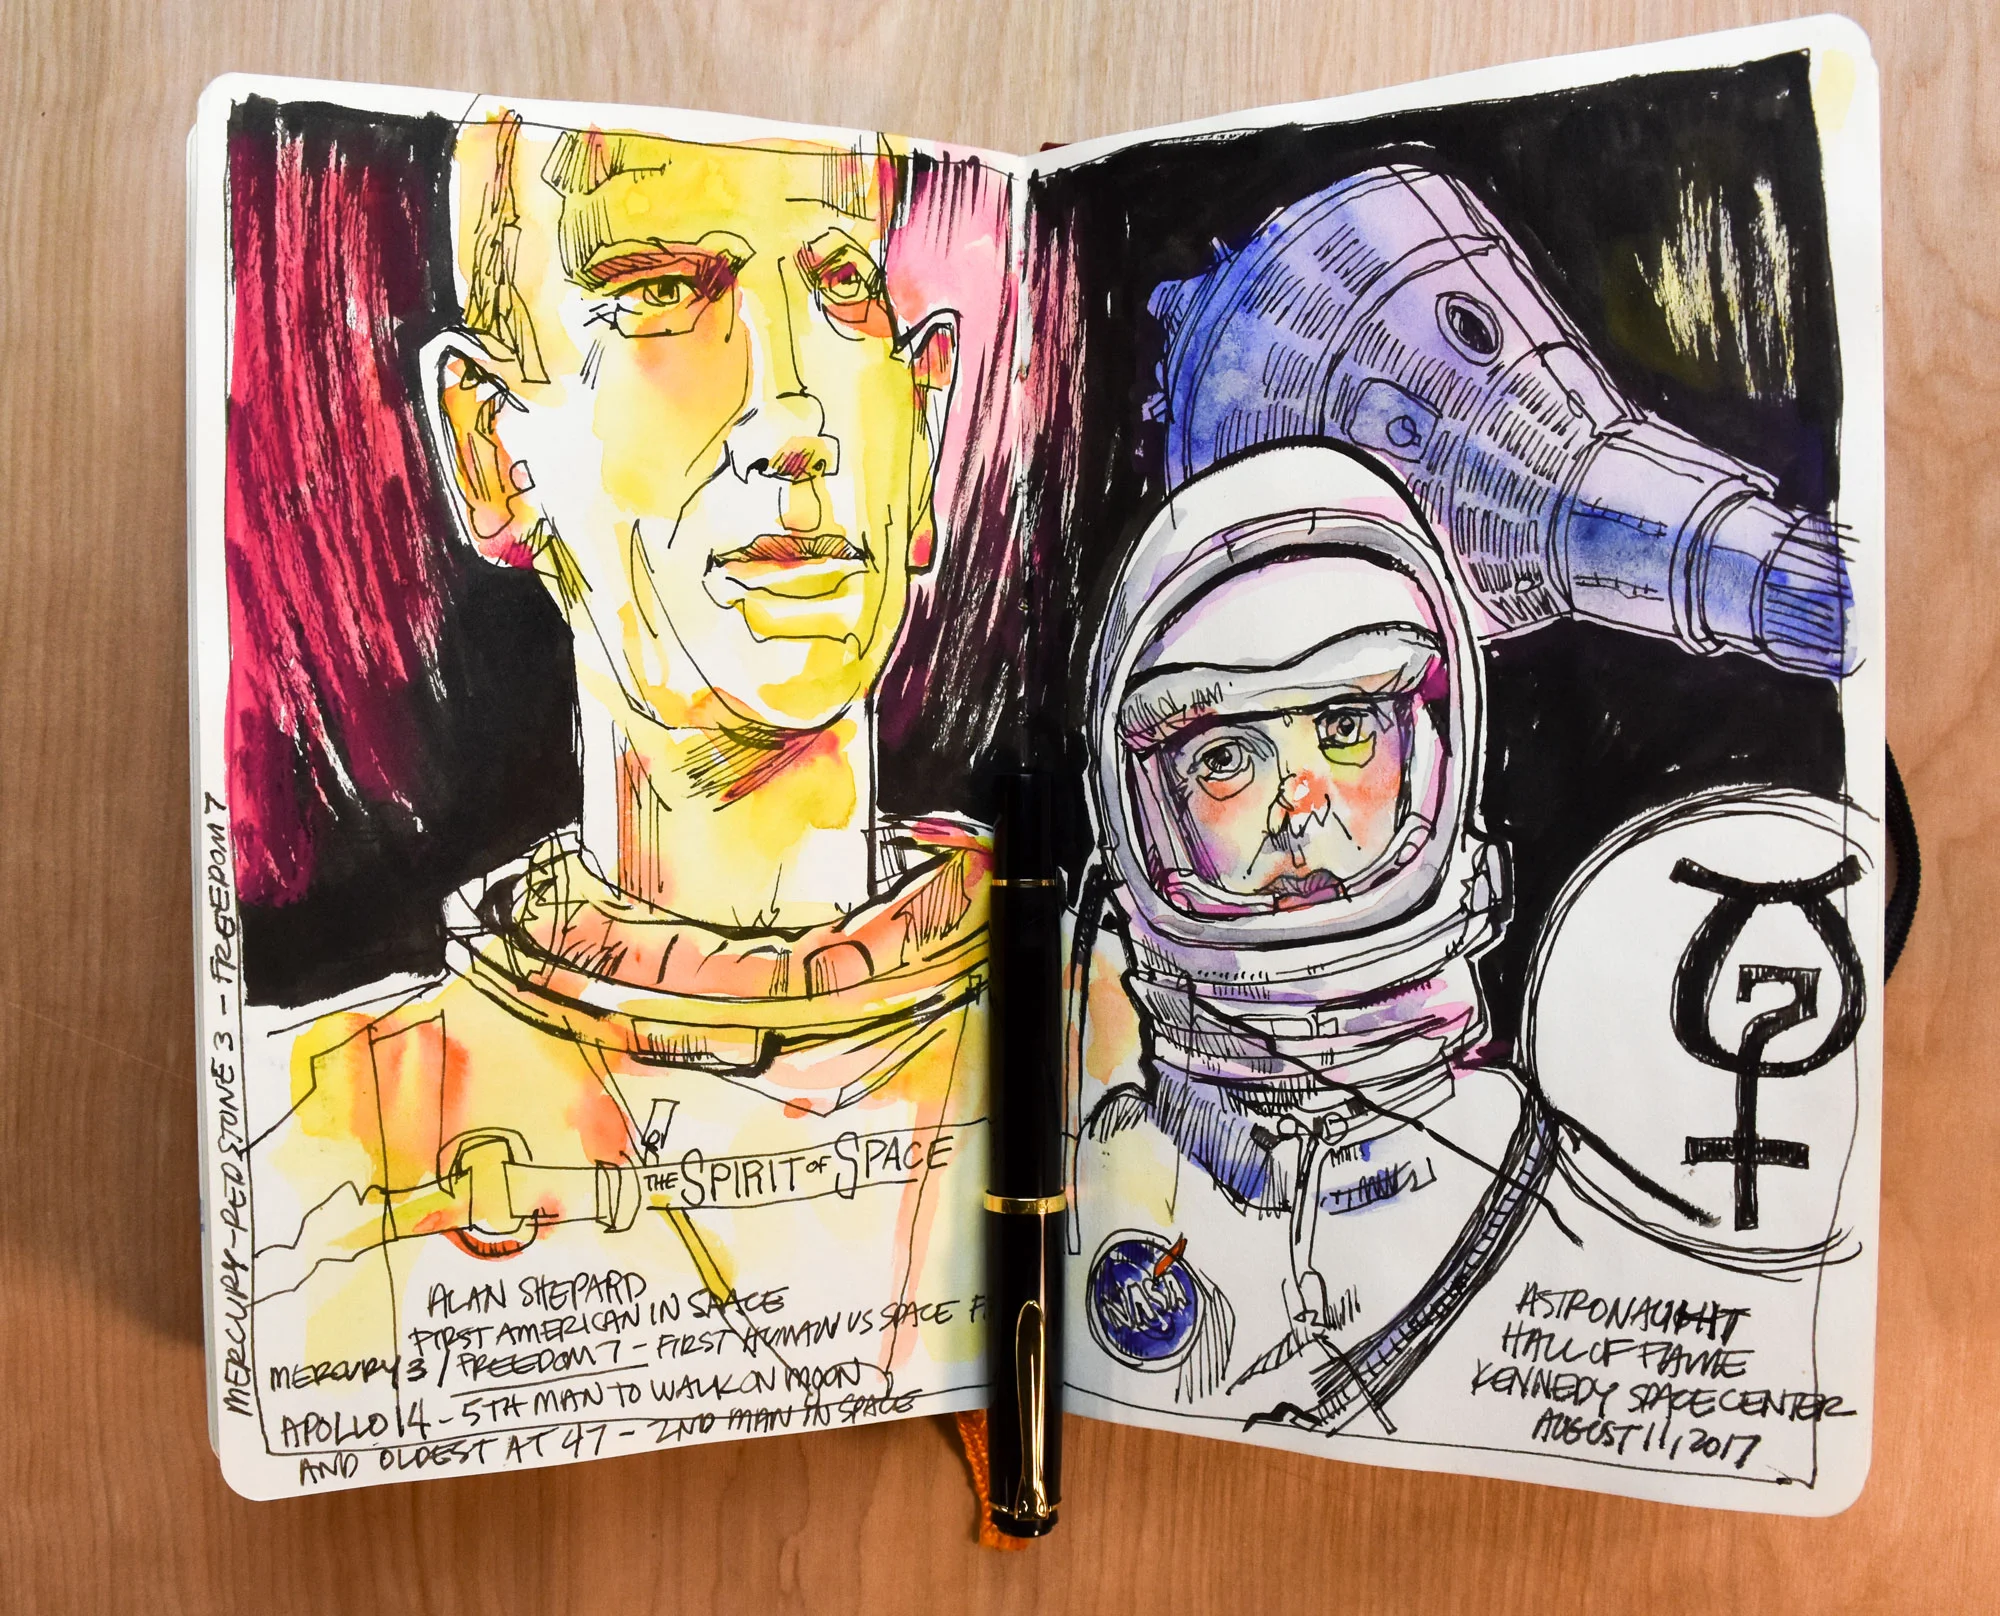 MERCURY-REDSTONE 3 - FREEDOM 7
THE SPIRIT OF SPACE
ALAN SHEPARD
FIRST AMERICAN IN SPACE
MERCURY 3 / FREEDOM 7 - FIRST HUMAN US SPACE
APOLLO 14 - 5TH MAN TO WALK ON MOON
AND OLDEST AT 47 - 2ND MAN IN SPACE
7
NASA
ASTRONAUGHT
HALL OF FAME
KENNEDY SPACE CENTER
AUGUST 11, 2017